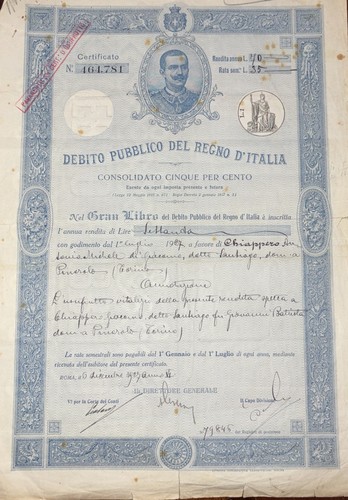 Certificato
N.º 164.781
Rendita annua L. 70
Rata sem.le L. 35
DEBITO PUBBLICO DEL REGNO D'ITALIA
CONSOLIDATO CINQUE PER CENTO
Esente da ogni imposta presente e futura
Nel Gran Libro del Debito Pubblico del Regno d'Italia è inscritta
l'annua rendita di Lire Settanta
con godimento dal 1º Luglio 1927 a favore di Chiappero
Michele di Giacomo, detto Santiago, dom. a
Pinerolo (Torino)
Annotazione
L'usufrutto vitalizio della presente rendita spetta a
Chiappero Giacomo detto Santiago fu Giovanni Battista
dom. a Pinerolo (Torino)
La rate semestrali sono pagabili dal 1º Gennaio e dal 1º Luglio di ogni anno, mediante
ricevuta dell'esibitore del presente certificato.
ROMA, dicembre 1927 Anno
IL DIRETTORE GENERALE
Vº per la Corte dei Conti
Il Capo Divisione
Nº 79845